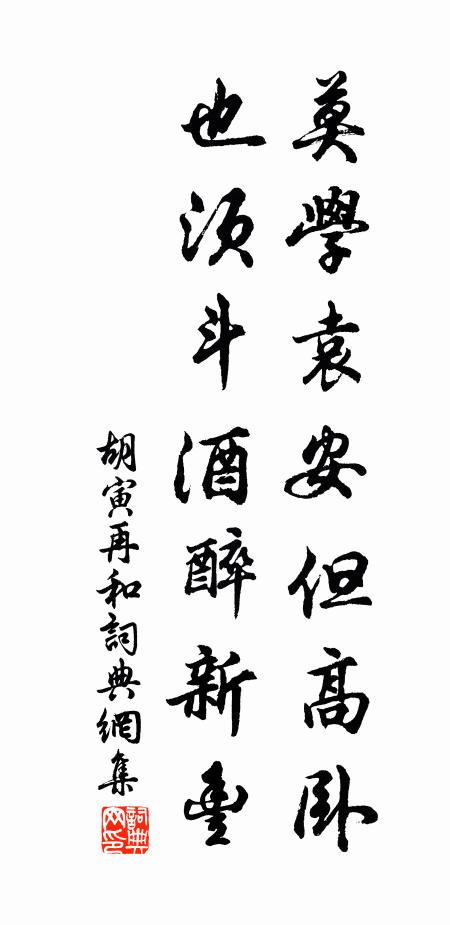 莫學袁安但高卧
也須斗酒醉新豐
胡寅再和詞典網集
詞典网印